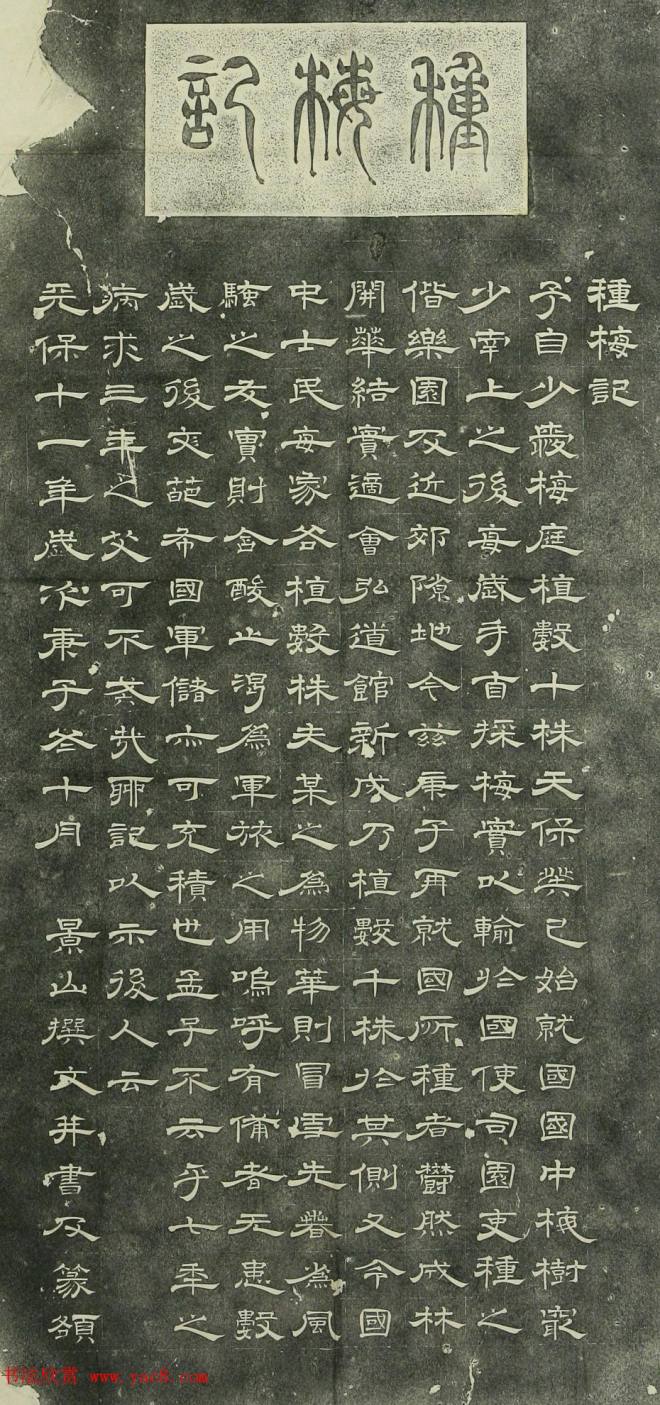 種梅記
種梅記
予自少愛梅庭植數十株天保癸巳始就國國中梅樹最
少南上之後每歲手自採梅實以輸於國使司園吏種之
偕樂園及近郊隙地今茲庚子再就國所種者鬱然成林
開華結實適會弘道館新成乃植數千株於其側又令國
中士民每家各植數株夫某之爲物華則冒雪先春爲風
騷之友實則含酸止渴爲軍旅之用嗚呼有備者无患數
歲之後文葩布國軍儲亦可充積也孟子不云乎七年之
病求三年之艾可不戒哉聊記以示後人云
天保十一年歲次庚子冬十月 景山撰文并書及篆額
书法欣赏 www.yac8.com